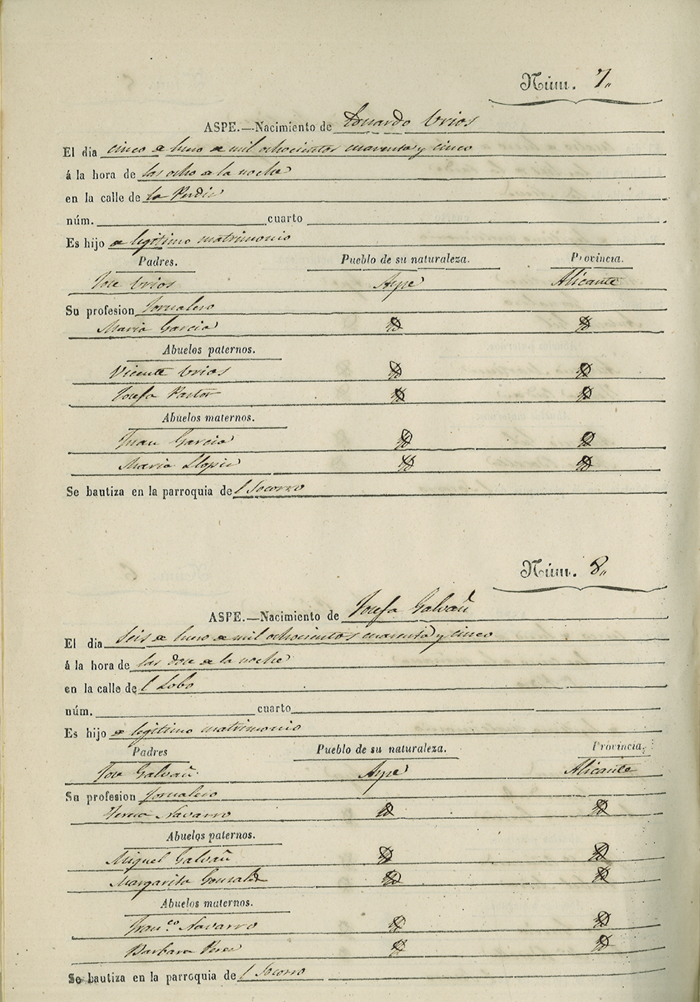 Núm. 7.
ASPE.—Nacimiento de Eduardo Urios
El dia cinco de Enero de mil ochocientos cuarenta y cinco
á la hora de las ocho de la noche
en la calle de la Perdiz
núm. cuarto
Es hijo de legitimo matrimonio
Padres. Pueblo de su naturaleza. Provincia.
Jose Urios Aspe Alicante
Su profesion Jornalero
Maria Garcia
Abuelos paternos.
Vicente Urios
Josefa Pastor
Abuelos maternos.
Garcia
Maria Llopis
Se bautiza en la parroquia del Socorro
Núm. 8.
ASPE.—Nacimiento de Josefa Galvañ
El dia seis de Enero de mil ochocientos cuarenta y cinco
á la hora de las doce de la noche
en la calle del Lobo
núm. cuarto
Es hijo de legitimo matrimonio
Padres Pueblo de su naturaleza. Provincia.
Jose Galvañ Aspe Alicante
Su profesion Jornalero
Teresa Navarro
Abuelos paternos.
Miguel Galvañ
Margarita Gonzalez
Abuelos maternos.
Fran.co Navarro
Barbara Perez
Se bautiza en la parroquia del Socorro